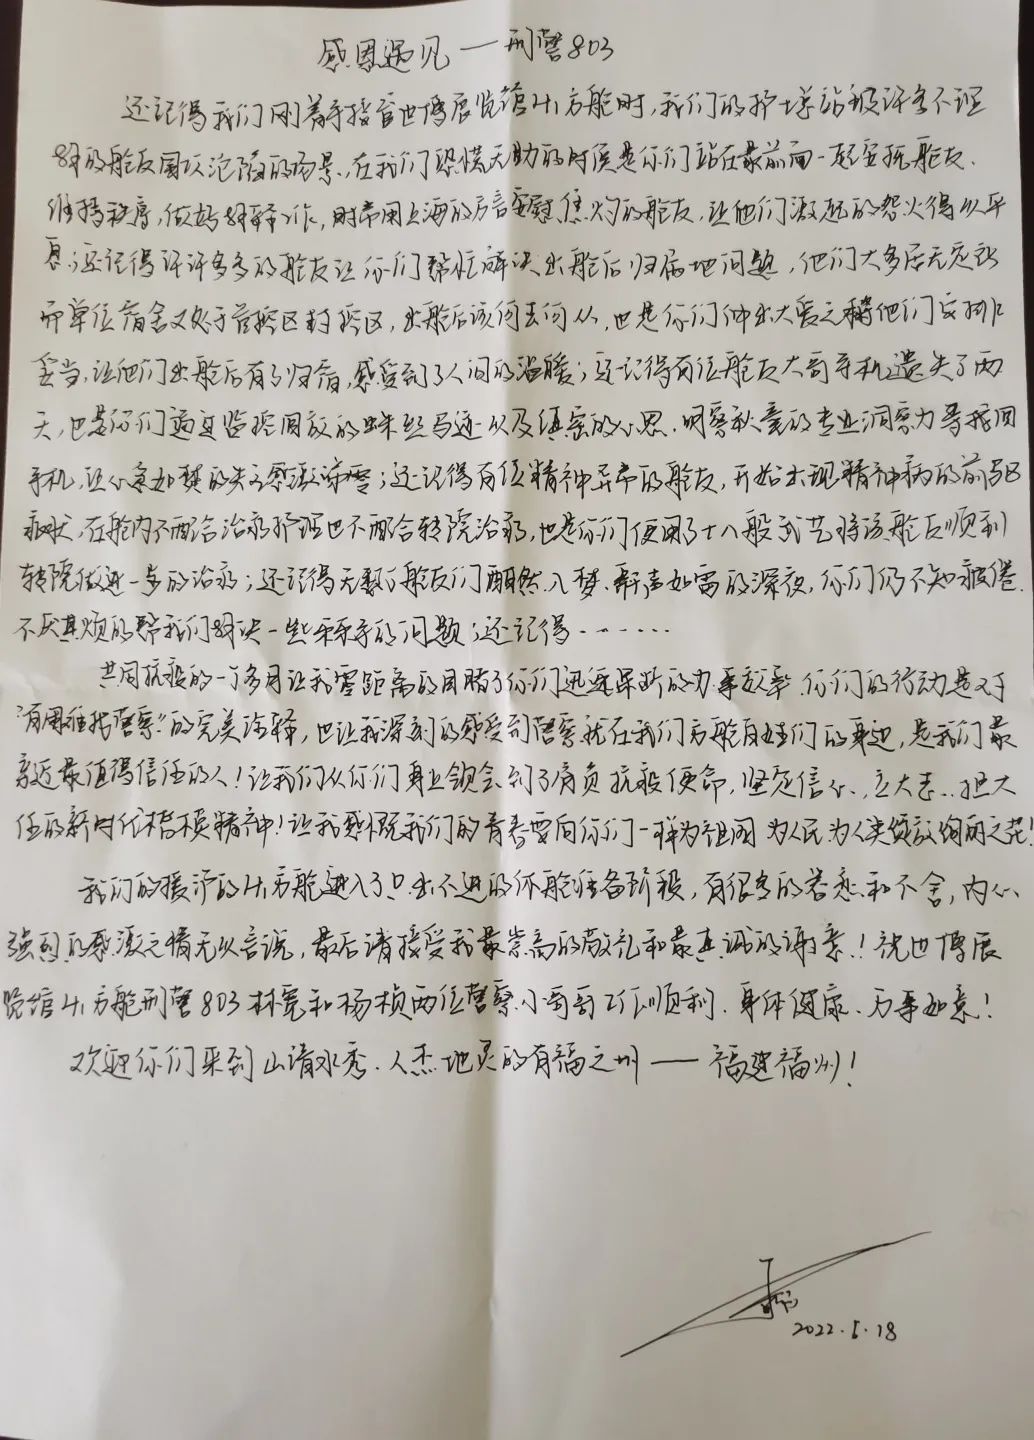 感恩遇见——刑警803
还记得我们刚着手接管世博展览馆H1方舱时,我们的护士站被许多不理
解的舱友围攻沦陷的场景,在我们恐慌无助的时候是你们站在最前面一起安抚舱友、
维持秩序,做好解释工作,时常用上海的方言安慰焦灼的舱友,让他们激起的怒火得以平
息;还记得许许多多的舱友让你们帮忙解决出舱后归属地问题,他们大多居无定所
而单位宿舍又处于管控区封控区,出舱后该何去何从,也是你们伸出大爱之手帮他们安排
妥当,让他们出舱后有了归宿,感受到了人间的温暖;还记得有位舱友大哥手机遗失了两
天,也是你们通过监控回放的蛛丝马迹以及缜密的心思、明察秋毫的专业洞察力寻找回
手机,让心急如焚的失主感激涕零;还记得有位精神异常的舱友,开始出现精神病的前驱
症状,在舱内不配合治疗护理也不配合转院治疗,也是你们使用了十八般武艺将该舱友顺利
转院做进一步的治疗;还记得无数个舱友们酣然入梦、鼾声如雷的深夜,你们仍不知疲倦、
不厌其烦的帮我们解决一些棘手的问题;还记得……
共同抗疫的一个多月让我零距离的目睹了你们迅速果断的办事效率,你们的行动是对于
"有困难找警察"的完美诠释,也让我深刻的感受到警察就在我们方舱医护们的身边,是我们最
亲近最值得信任的人!让我们从你们身上领会到了肩负抗疫使命,坚定信心、立大志、担大
任的新时代楷模精神!让我感慨我们的青春要向你们一样为祖国为人民为人类绽放绚丽之花!
我们的援沪的H1方舱进入了只出不进的休舱准备阶段,有很多的眷恋和不舍,内心
强烈的感激之情无以言说,最后请接受我最崇高的敬礼和最真诚的谢意!祝世博展
览馆H1方舱刑警803林宽和杨桢两位警察小哥哥工作顺利、身体健康、万事如意!
欢迎你们来到山清水秀、人杰地灵的有福之州——福建福州!
2022.5.18